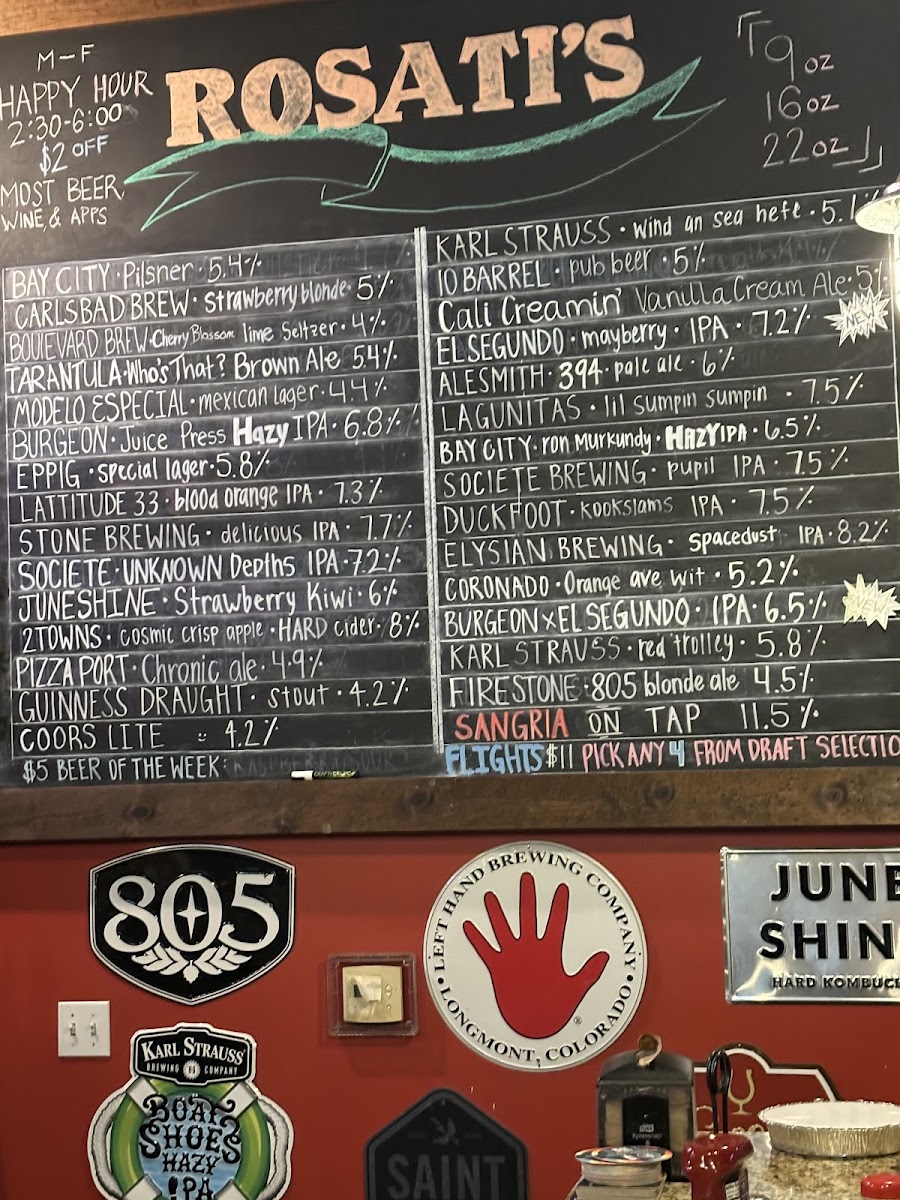 M-F
HAPPY HOUR
2:30-6:00
$2 OFF
MOST BEER,
WINE, & APPS
ROSATI'S
9 oz
16 oz
22 oz
BAY CITY · Pilsner · 5.4%
CARLSBAD BREW · Strawberry blonde · 5%
BOULEVARD BREW · Cherry Blossom lime Seltzer · 4%
TARANTULA · Who's That? Brown Ale 5.4%
MODELO ESPECIAL · mexican lager · 4.4%
BURGEON · Juice Press Hazy IPA · 6.8%
EPPIG · special lager · 5.8%
LATTITUDE 33 · blood orange IPA · 7.3%
STONE BREWING · delicious IPA · 7.7%
SOCIETE · UNKNOWN Depths IPA · 7.2%
JUNESHINE · Strawberry Kiwi · 6%
2TOWNS · cosmic crisp apple · HARD cider · 8%
PIZZA PORT · Chronic ale · 4.9%
GUINNESS DRAUGHT · stout · 4.2%
COORS LITE 4.2%
$5 BEER OF THE WEEK:
KARL STRAUSS · wind an sea hefe · 5.1%
10 BARREL · pub beer · 5%
Cali Creamin' Vanilla Cream Ale · 5%
EL SEGUNDO · mayberry · IPA · 7.2% NEW
ALESMITH · 394 · pale ale · 6%
LAGUNITAS · lil sumpin sumpin · 7.5%
BAY CITY · ron Murkundy · HAZY IPA · 6.5%
SOCIETE BREWING · pupil IPA · 7.5%
DUCKFOOT · kookslams IPA · 7.5%
ELYSIAN BREWING · Spacedust IPA · 8.2%
CORONADO · Orange ave wit · 5.2%
BURGEON x EL SEGUNDO · IPA · 6.5% NEW
KARL STRAUSS · red trolley · 5.8%
FIRESTONE · 805 blonde ale 4.5%
SANGRIA ON TAP 11.5%
FLIGHTS $11 PICK ANY 4 FROM DRAFT SELECTIO
805
LEFT HAND BREWING COMPANY
LONGMONT, COLORADO
JUNE
SHIN
HARD KOMBUC
KARL STRAUSS
BREWING COMPANY
BOAT
SHOES
HAZY
IPA
SAINT